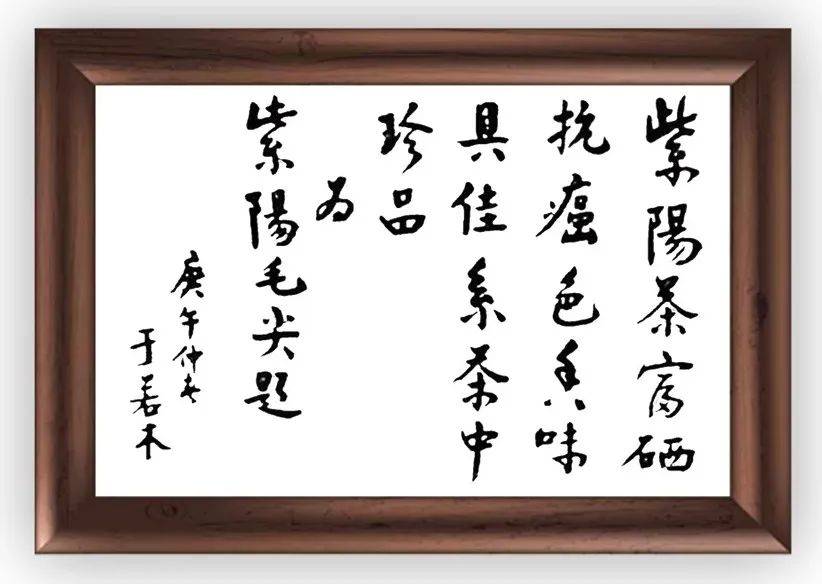 紫陽茶富硒
抗癌色香味
具佳系茶中
珍品
为
紫陽毛尖題
庚午仲春
于若木